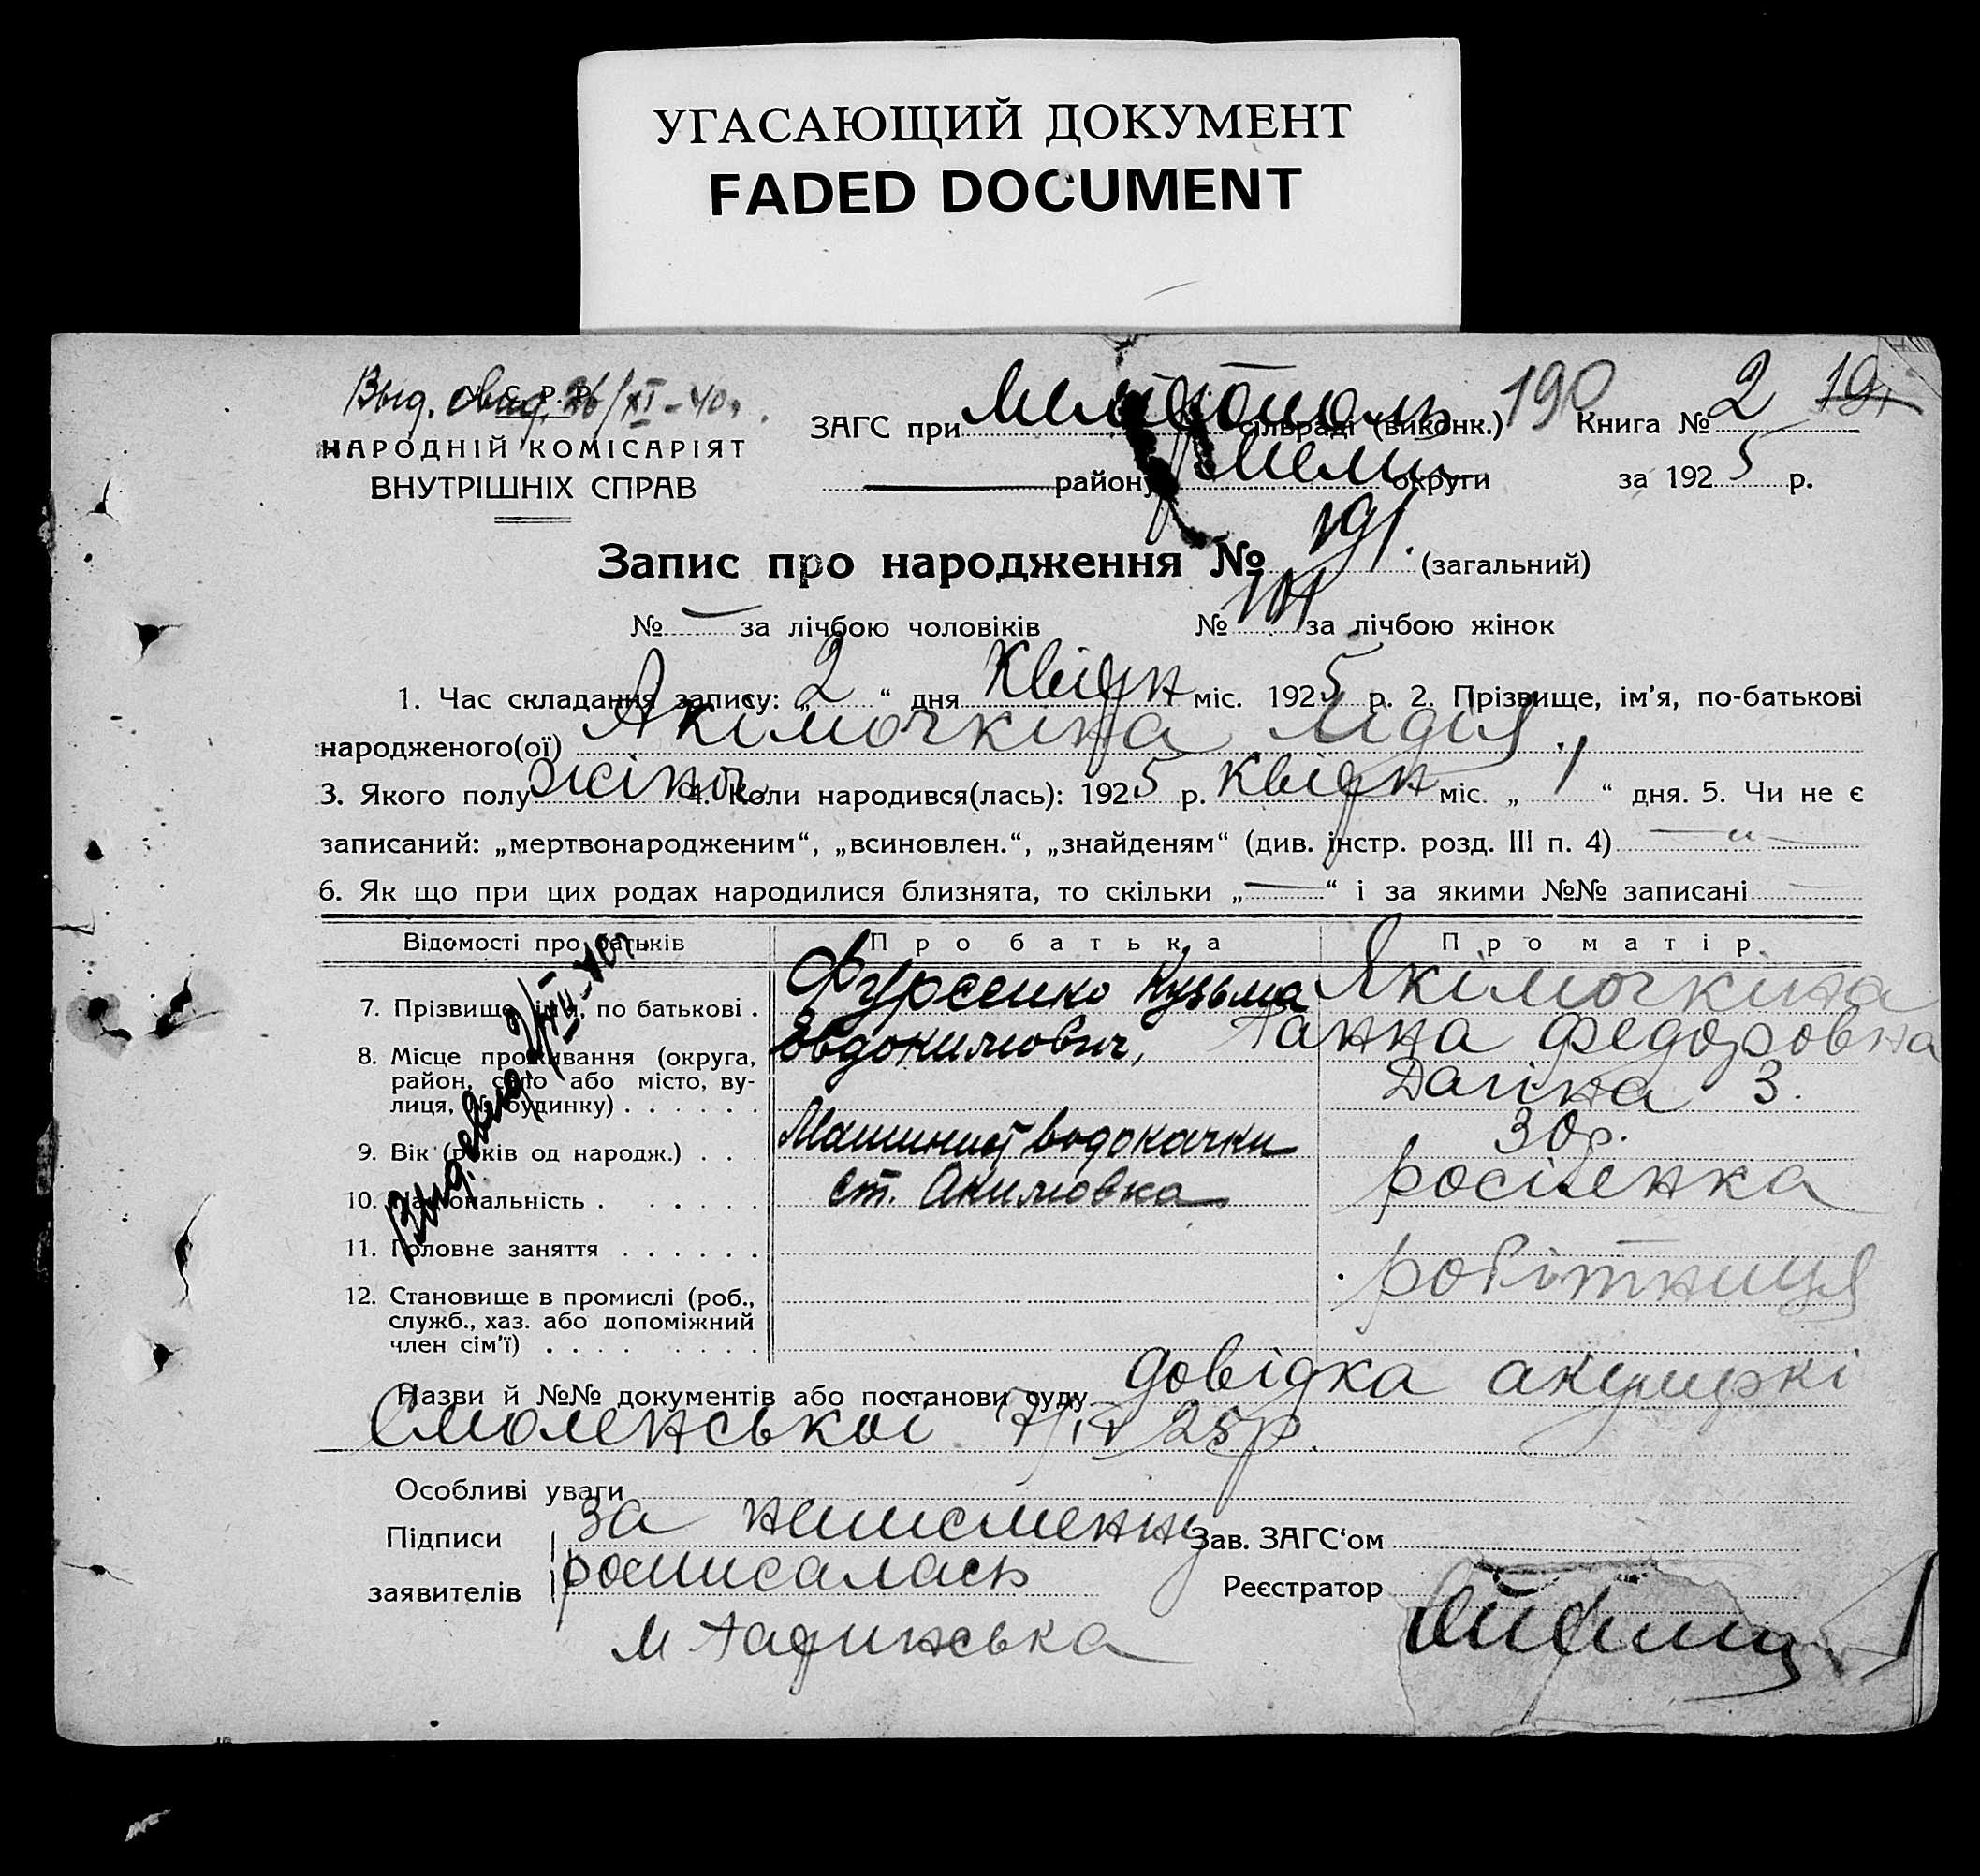 УГАСАЮЩИЙ ДОКУМЕНТ
FADED DOCUMENT
Выд. свид. 26/XI-40г.
У. С. Р. Р.
НАРОДНІЙ КОМІСАРІЯТ
ВНУТРІШНІХ СПРАВ
ЗАГС при Мелітополь сільраді (виконк.) 190 Книга № 2 191
— району Мелит. округи за 1925 р.
Запис про народження № 191. (загальний)
№ — за лічбою чоловіків № 101 за лічбою жінок
1. Час складання запису: „2“ дня Квітня міс. 1925 р. 2. Прізвище, ім’я, по-батькові
народженого(ої) Акімочкіна Лідія.
3. Якого полу жіноч. 4. Коли народився(лась): 1925 р. Квітня міс. „1“ дня. 5. Чи не є
записаний: „мертвонародженим“, „всиновлен.“, „знайденям“ (див. інстр. розд. III п. 4) — „ —
6. Як що при цих родах народилися близнята, то скільки „—“ і за якими №№ записані —
Відомості про батьків Про батька Про матір
7. Прізвище, ім’я, по батькові . Фурсенко Кузьма Якімочкіна
Евдокимович, Ганна Федоровна
8. Місце проживання (округа,
район, село або місто, ву-
лиця, № будинку) . . . . . . 3.
9. Вік (років од народж.) . . . Машинист водокачки 30 р.
10. Національність . . . . . . ст. Акимовка росіянка
11. Головне заняття . . . . . . —
12. Становище в промислі (роб., робітниця
служб., хаз. або допоміжний
член сім’ї) . . . . . . . .
Выд. свид. 2/XII-40г.
Назви й №№ документів або постанови суду довідка акушеркі
Смоленської 7/IV 25р.
Особливі уваги
Підписи за неписменну Зав. ЗАГС‘ом
заявителів росписалась Реєстратор
М